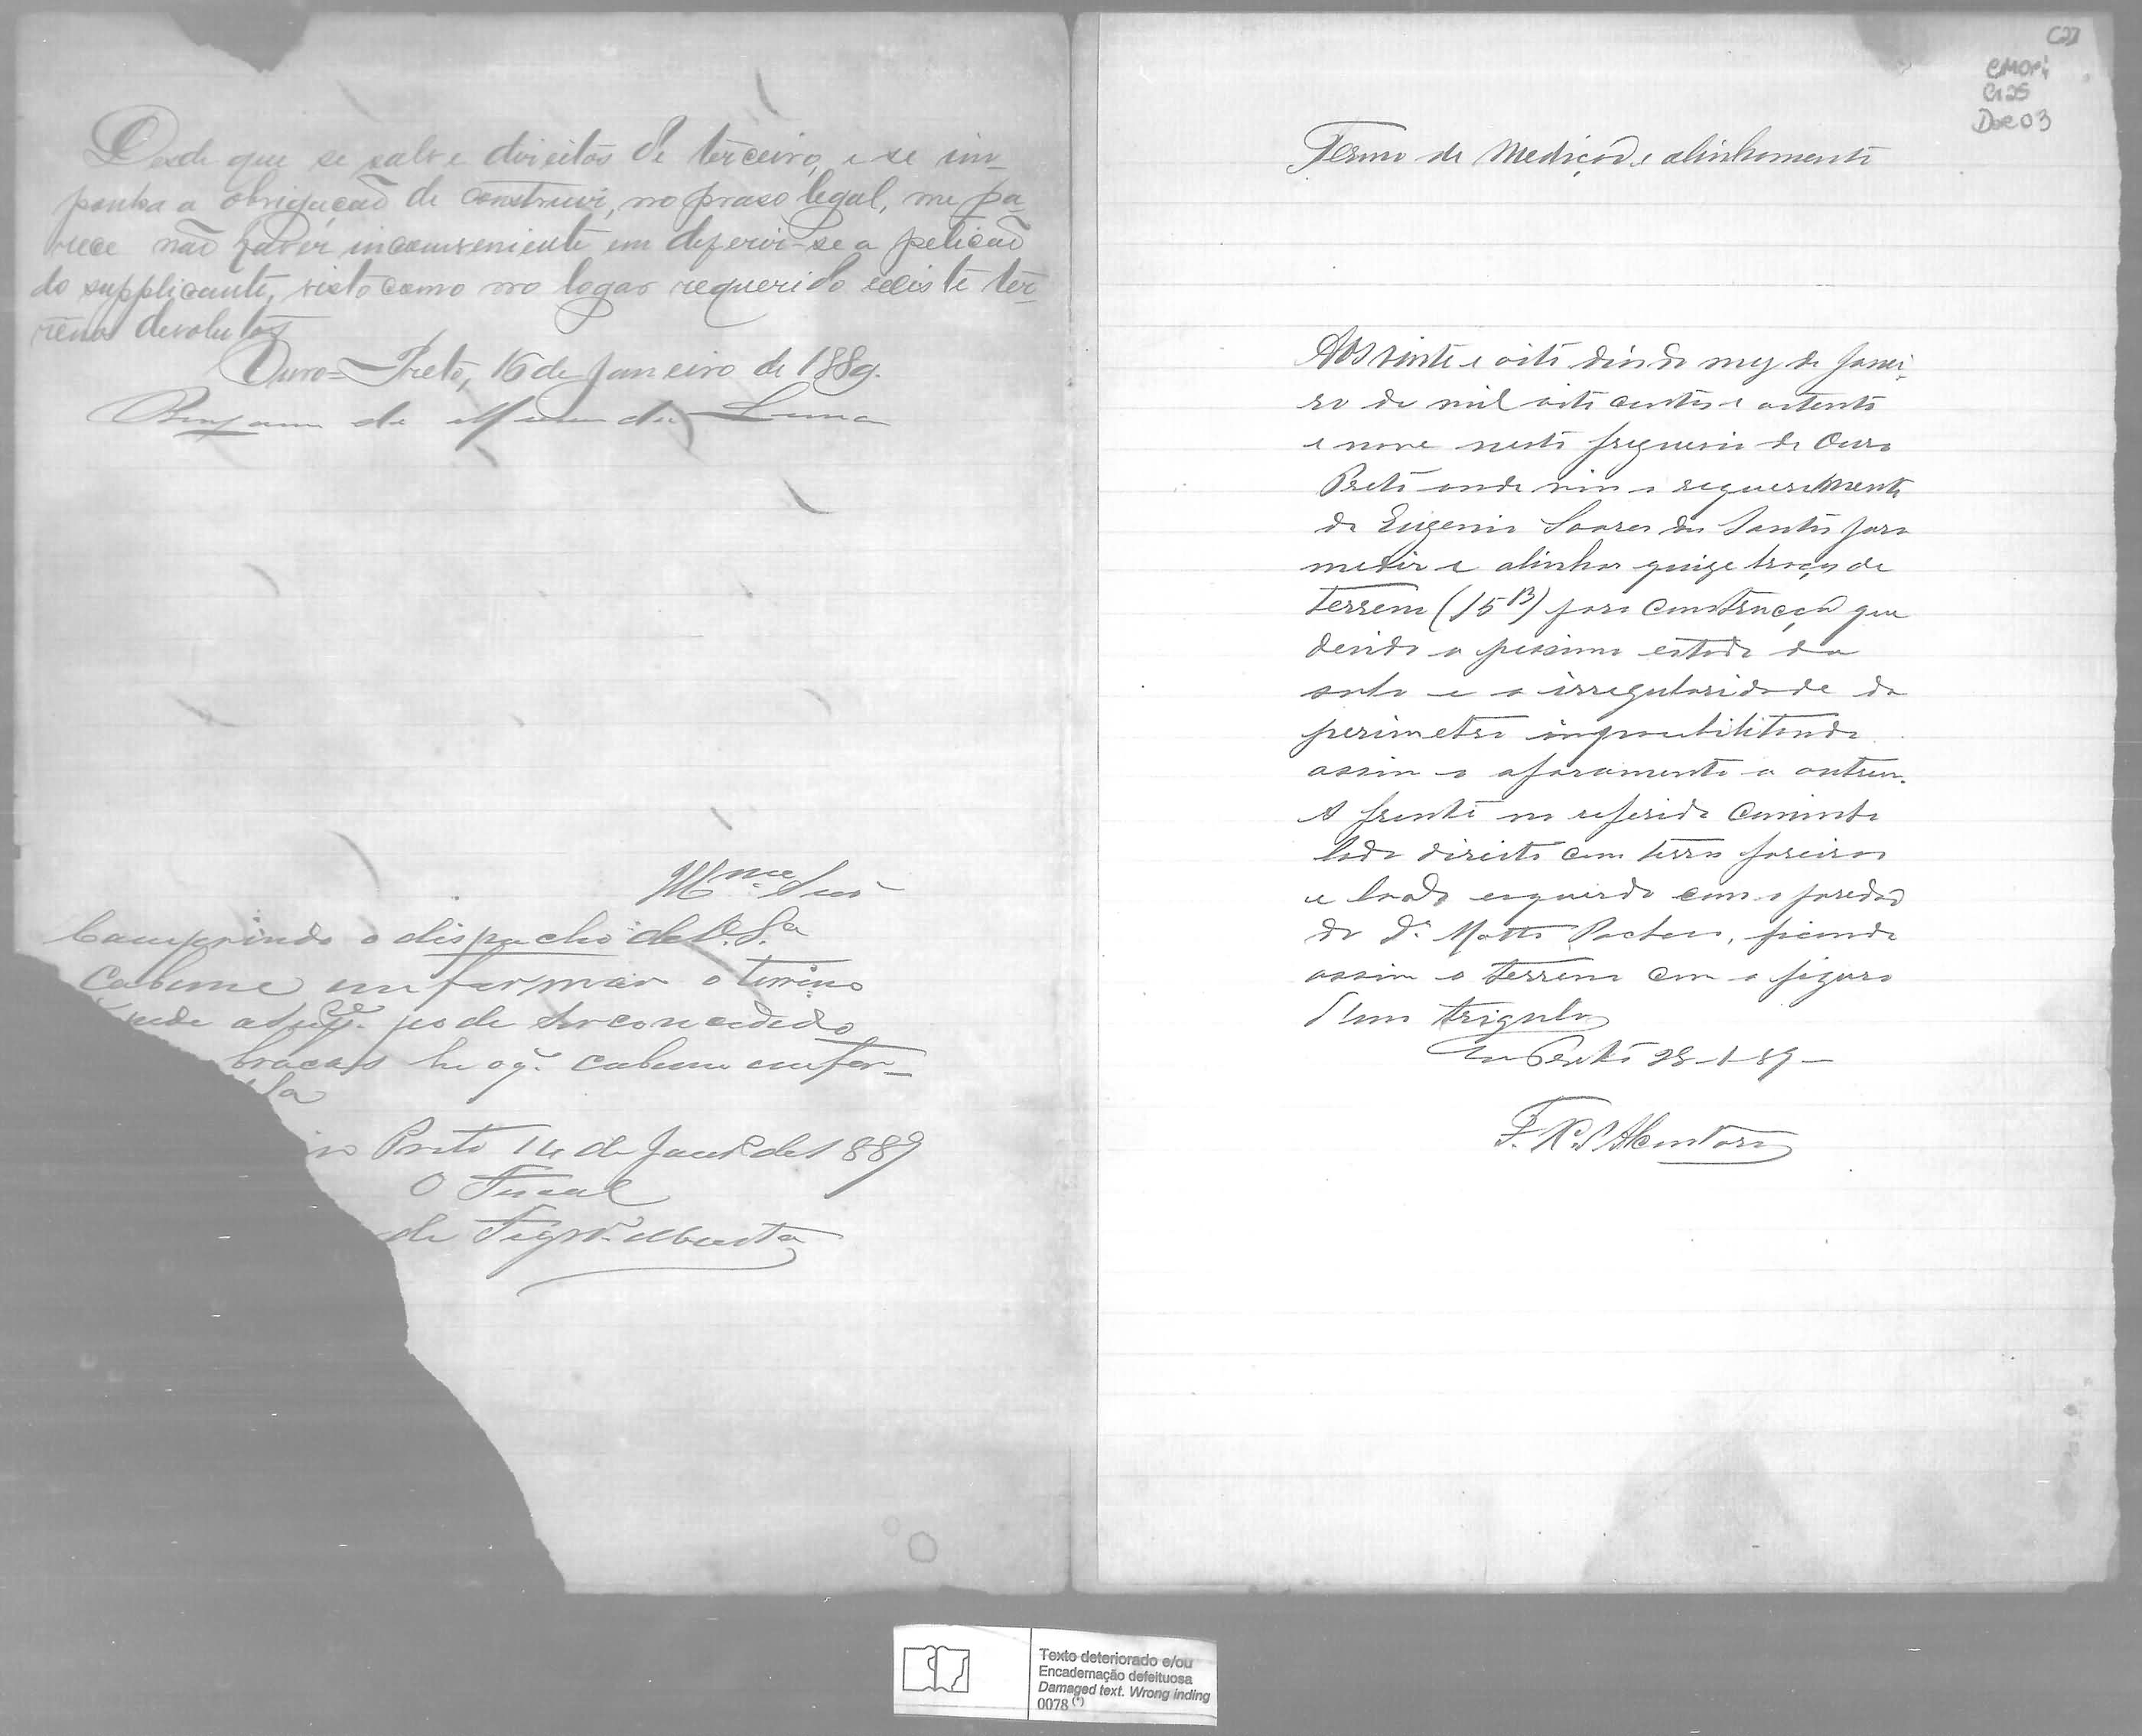 Desde que se salve direitos de terceiro, e se im-
ponha a obrigação de construir, no praso legal, me pa-
rece não haver inconveniente em deferir-se a petição
do supplicante, visto como no logar requerido existe ter-
renos devolutos
Ouro-Preto, 16 de Janeiro de 1889.
de Lima
Cumprindo o dispacho de V. S.ª
cabeme informar o terreno
pede ser concedido
braças he o q. cabeme enfor-
Preto 14 de Janrº de 1889
O Fiscal
de
C27
CMOP
Cx25
Doc 03
Termo de Medição e alinhamento
Aos vinte e oito dias do mez de Janei-
ro de mil oito centos e oitenta
e nove nesta freguesia de Ouro
Preto onde vim a requerimento
de Eugenio Soares dos Santos para
medir e alinhar quinze braças de
terreno (15B) para construcção que
devido o pessimo estado do
solo e a irregularidade do
perimetro impossibilitando
assim o aforamento a outrem.
A frente no referido caminho
lado direito com terras foreiras
e lado esquerdo com o paredão
do Dr. Motta Pacheco, ficando
assim o terreno com a figura
d'um triangulo
Ouro Preto 28-1-89-
F. d'Alcantara
Texto deteriorado e/ou
Encadernação defeituosa
Damaged text. Wrong inding
0078 (*)